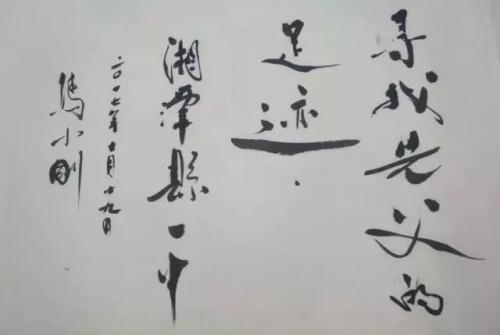 寻我先父的
足迹.
湘潭县一中
二〇一七年十月十九日
马小刚